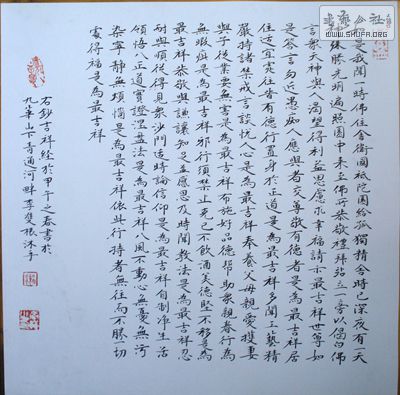 如是我聞一時佛住舍衛國祇陀園給孤獨精舍時已深夜有天
神殊勝光明遍照園中来至佛所恭敬禮拜站立一旁以偈白佛
言眾天神與人渴望得利益思慮求幸福請示最吉祥世尊如
是答言勿近愚痴人應與智者交尊敬有德者是為最吉祥居
住適宜處往昔有德行置身於正道是為最吉祥多聞工藝精
嚴持諸禁戒言談悅人心是為最吉祥奉養父母親愛護妻
與子從業要無害是為最吉祥布施好品德幫助眾親眷行為
無瑕疵是為最吉祥邪行須禁止克己不飲酒美德堅不移是為
最吉祥恭敬與謙讓知足並感恩及時聞教法是為最吉祥忍
耐與順從得見眾沙門適時論信仰是為最吉祥自制淨生活
領悟八正道實證涅槃法是為最吉祥八風不動心無憂無污
染寧靜無煩惱是為最吉祥依此行持者無往而不勝一切
處得福是為最吉祥
右鈔吉祥經於甲午之春書於
九華山下青通河畔李雙根沐手
WWW.SHUFA.ORG